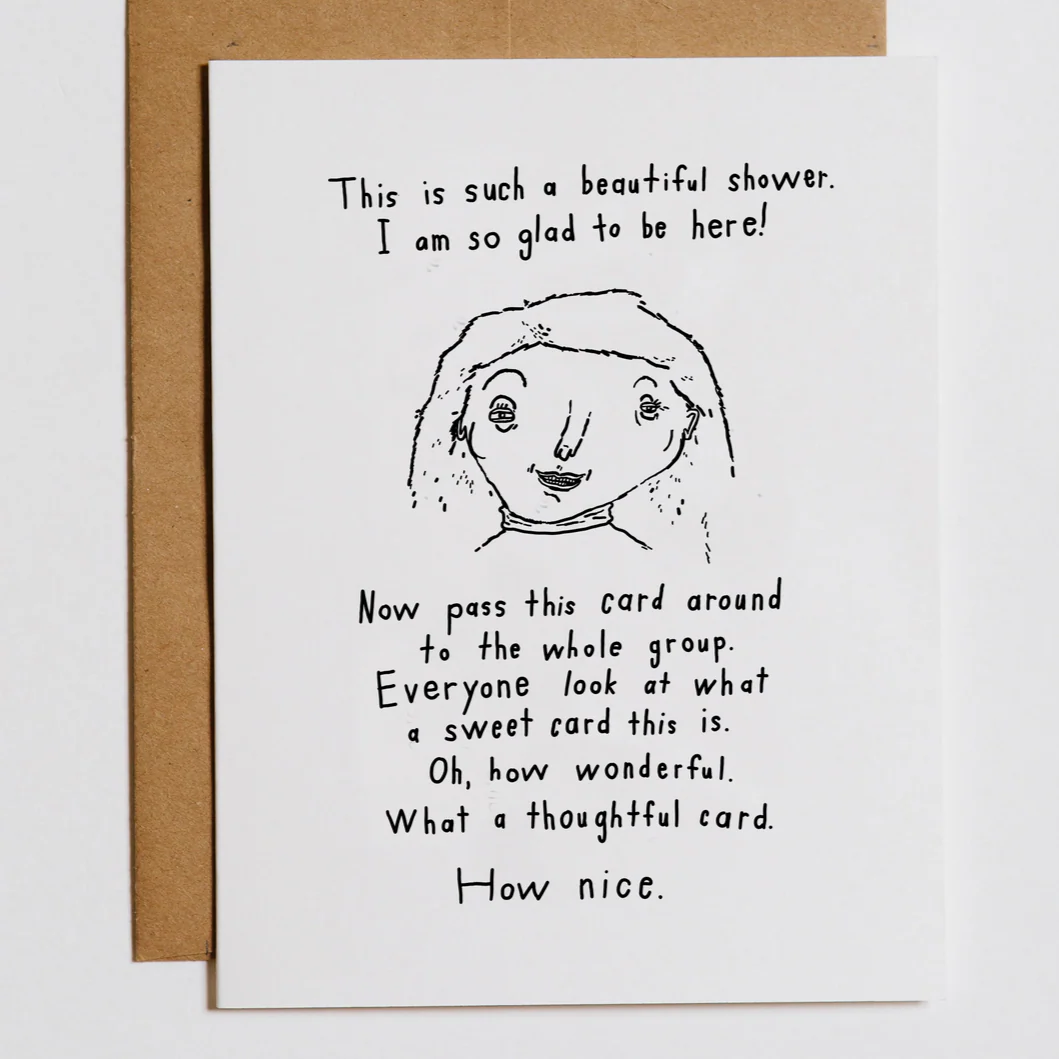 This is such a beautiful shower.
I am so glad to be here!
Now pass this card around
to the whole group.
Everyone look at what
a sweet card this is.
Oh, how wonderful.
What a thoughtful card.
How nice.